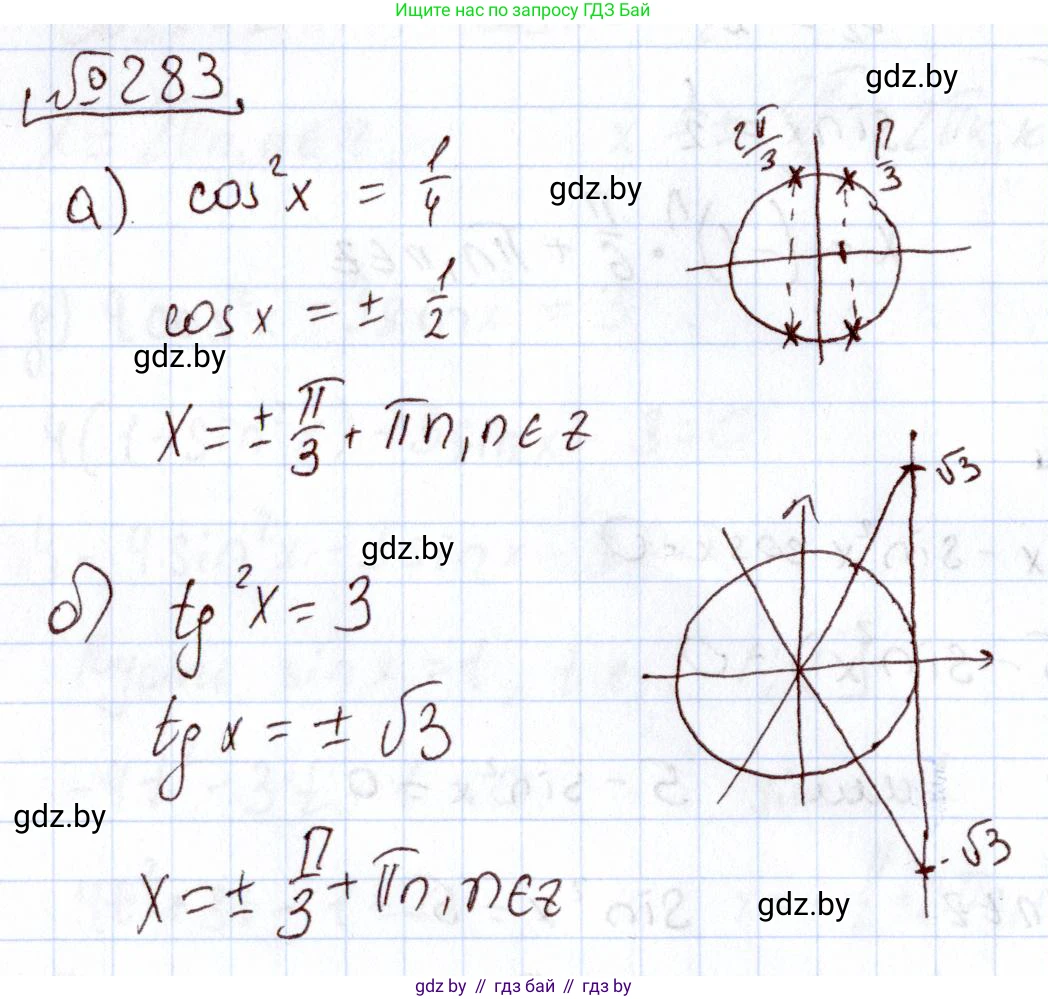 Ищите нас по запросу ГДЗ Бай
№ 283
gdz.by
а) cos²x = 1/4
gdz.by
2π/3
π/3
cos x = ± 1/2
gdz.by
x = ± π/3 + πn, n ∈ Z
√3
gdz.by
б) tg²x = 3
tg x = ± √3
gdz.by
-√3
x = ± π/3 + πn, n ∈ Z
gdz.by
gdz.by // гдз бай // gdz.by